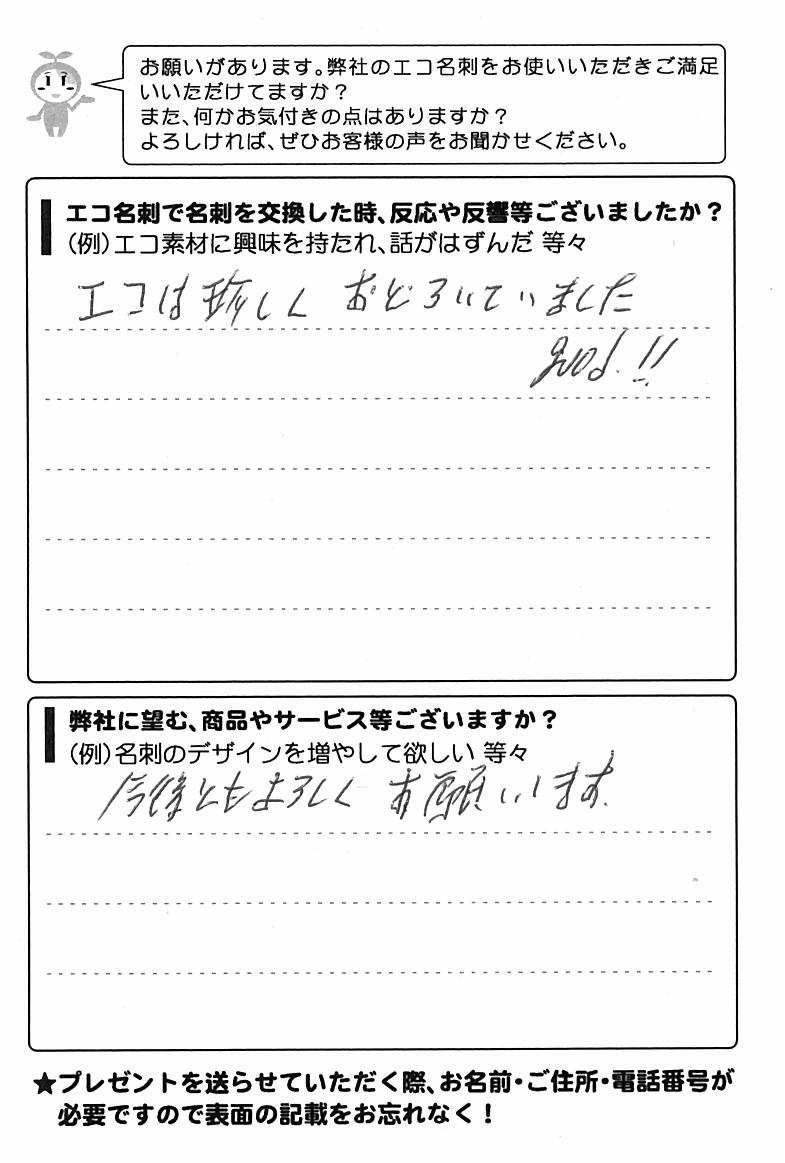 お願いがあります。弊社のエコ名刺をお使いいただきご満足
いいただけてますか？
また、何かお気付きの点はありますか？
よろしければ、ぜひお客様の声をお聞かせください。
エコ名刺で名刺を交換した時、反応や反響等ございましたか？
（例）エコ素材に興味を持たれ、話がはずんだ 等々
エコは珍しく おどろいていました
good.!!
弊社に望む、商品やサービス等ございますか？
（例）名刺のデザインを増やして欲しい 等々
今後ともよろしく お願いします。
★プレゼントを送らせていただく際、お名前・ご住所・電話番号が
必要ですので表面の記載をお忘れなく！